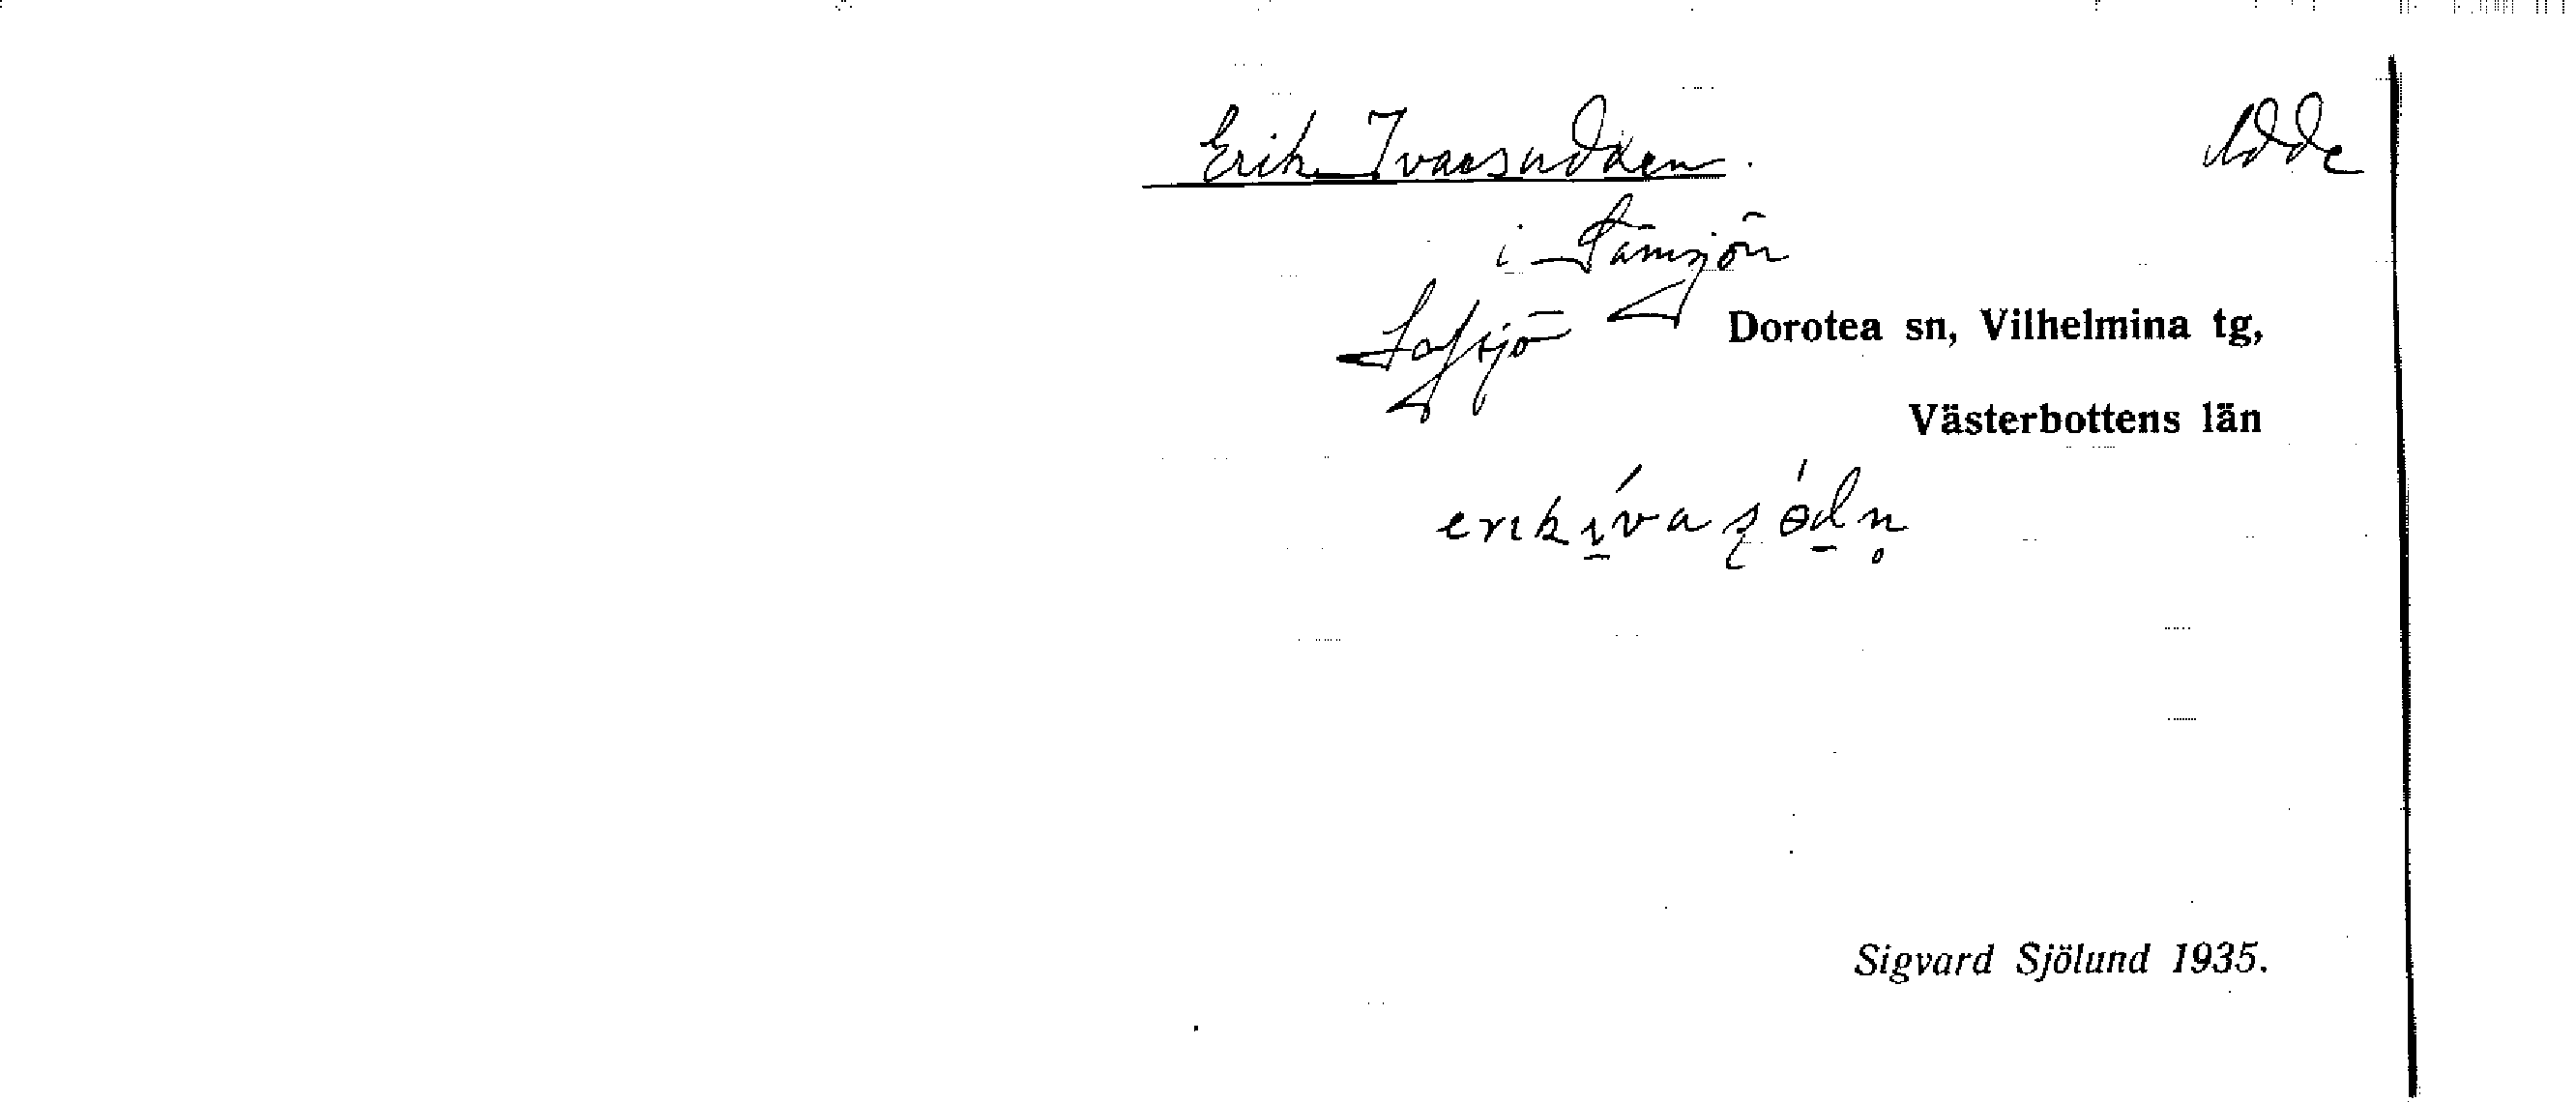 Erik Ivarsudden. Udde
i
Lafsjö Dorotea sn, Vilhelmina tg,
Västerbottens län
Sigvard Sjölund 1935.